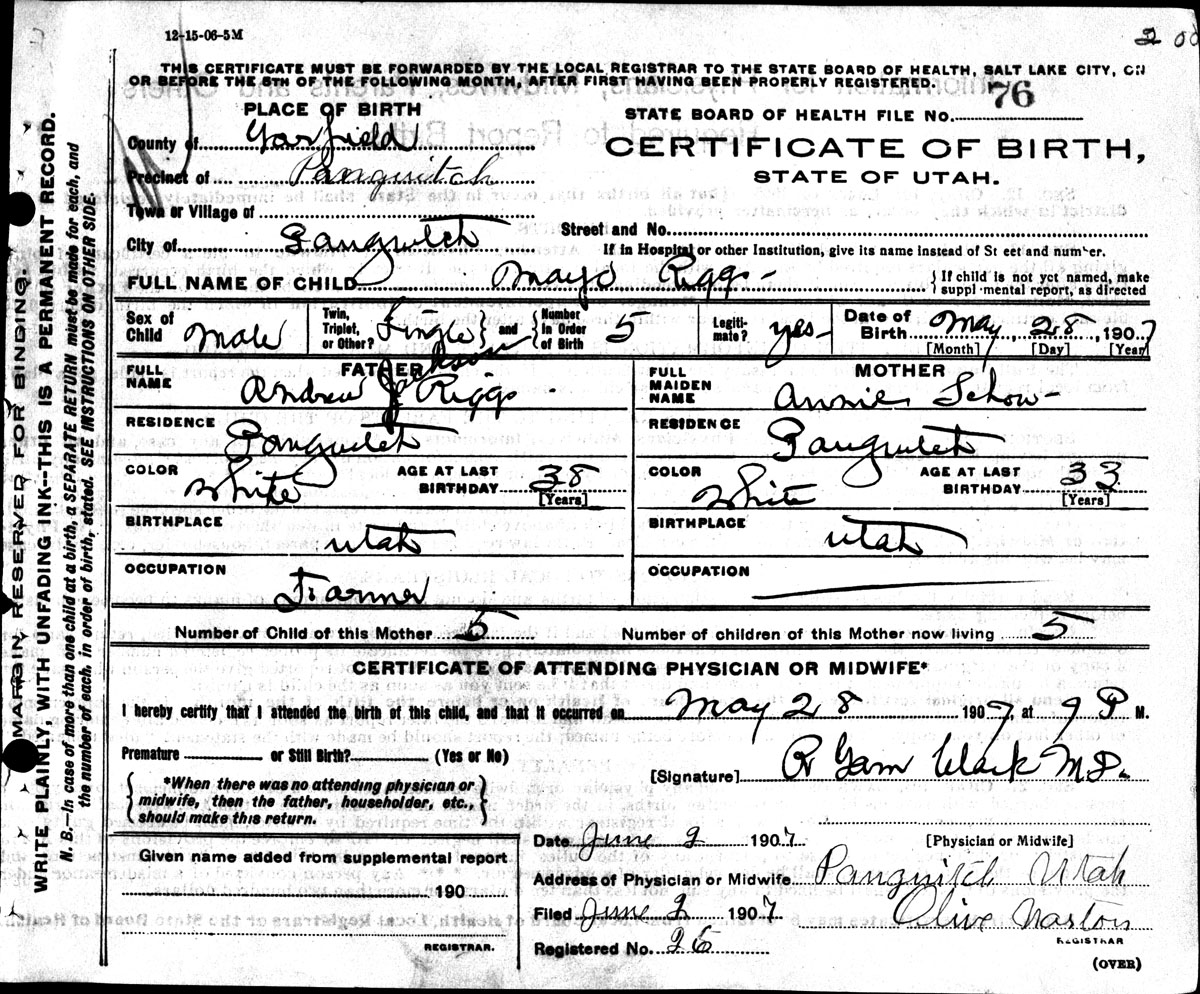 12-15-06-5M
2 00
THIS CERTIFICATE MUST BE FORWARDED BY THE LOCAL REGISTRAR TO THE STATE BOARD OF HEALTH, SALT LAKE CITY, ON
OR BEFORE THE 5TH OF THE FOLLOWING MONTH, AFTER FIRST HAVING BEEN PROPERLY REGISTERED.
PLACE OF BIRTH
STATE BOARD OF HEALTH FILE NO. 76
County of Garfield
CERTIFICATE OF BIRTH,
Precinct of Panguitch
STATE OF UTAH.
Town or Village of
Street and No.
City of Panguitch
If in Hospital or other Institution, give its name instead of St eet and number.
FULL NAME OF CHILD Mayo Riggs - { If child is not yet named, make
suppl mental report, as directed
Sex of Child Male Twin, Triplet, or Other? Single } and { Number in Order of Birth 5 Legiti- mate? yes- Date of Birth May, 28, 1907
[Month] [Day] [Year]
FATHER
FULL NAME Andrew Jackson Riggs
RESIDENCE Panguitch
COLOR White AGE AT LAST BIRTHDAY 38
[Years]
BIRTHPLACE Utah
OCCUPATION Farmer
MOTHER
FULL MAIDEN NAME Annie Schow-
RESIDENCE Panguitch
COLOR White AGE AT LAST BIRTHDAY 33
[Years]
BIRTHPLACE Utah
OCCUPATION
Number of Child of this Mother 5 Number of children of this Mother now living 5
CERTIFICATE OF ATTENDING PHYSICIAN OR MIDWIFE*
I hereby certify that I attended the birth of this child, and that it occurred on May 28 1907, at 9 P M.
Premature or Still Birth? (Yes or No)
[Signature] R Garn Clark M.D.
*When there was no attending physician or
midwife, then the father, householder, etc.,
should make this return.
[Physician or Midwife]
Date June 2 1907
Given name added from supplemental report
190
REGISTRAR.
Address of Physician or Midwife Panguitch Utah
Filed June 2 1907 Olive Norton
REGISTRAR
Registered No. 26
(OVER)
MARGIN RESERVED FOR BINDING.
WRITE PLAINLY, WITH UNFADING INK--THIS IS A PERMANENT RECORD.
N. B.—In case of more than one child at a birth, a SEPARATE RETURN must be made for each, and
the number of each, in order of birth, stated. SEE INSTRUCTIONS ON OTHER SIDE.